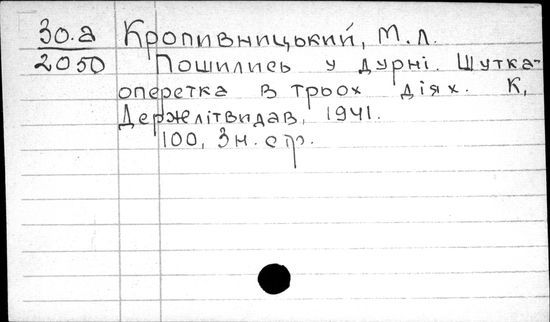 30.а Кропивницький, М.Л.
2050 Пошились у дурні. Шутка-
оперетка в трьох діях. К,
Держлітвидав, 1941.
100, 3 н. стр.